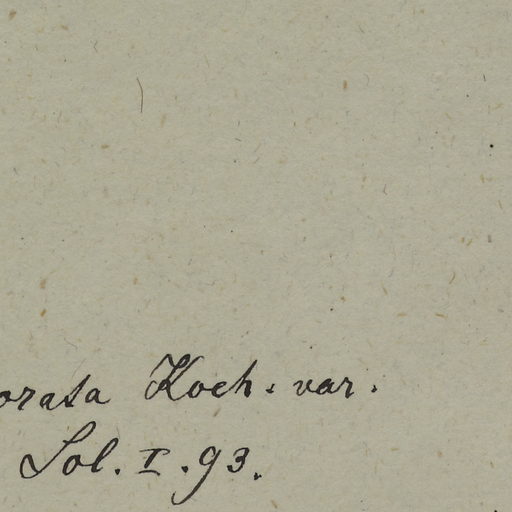 orata Koch. var.
Sol. I. 93.